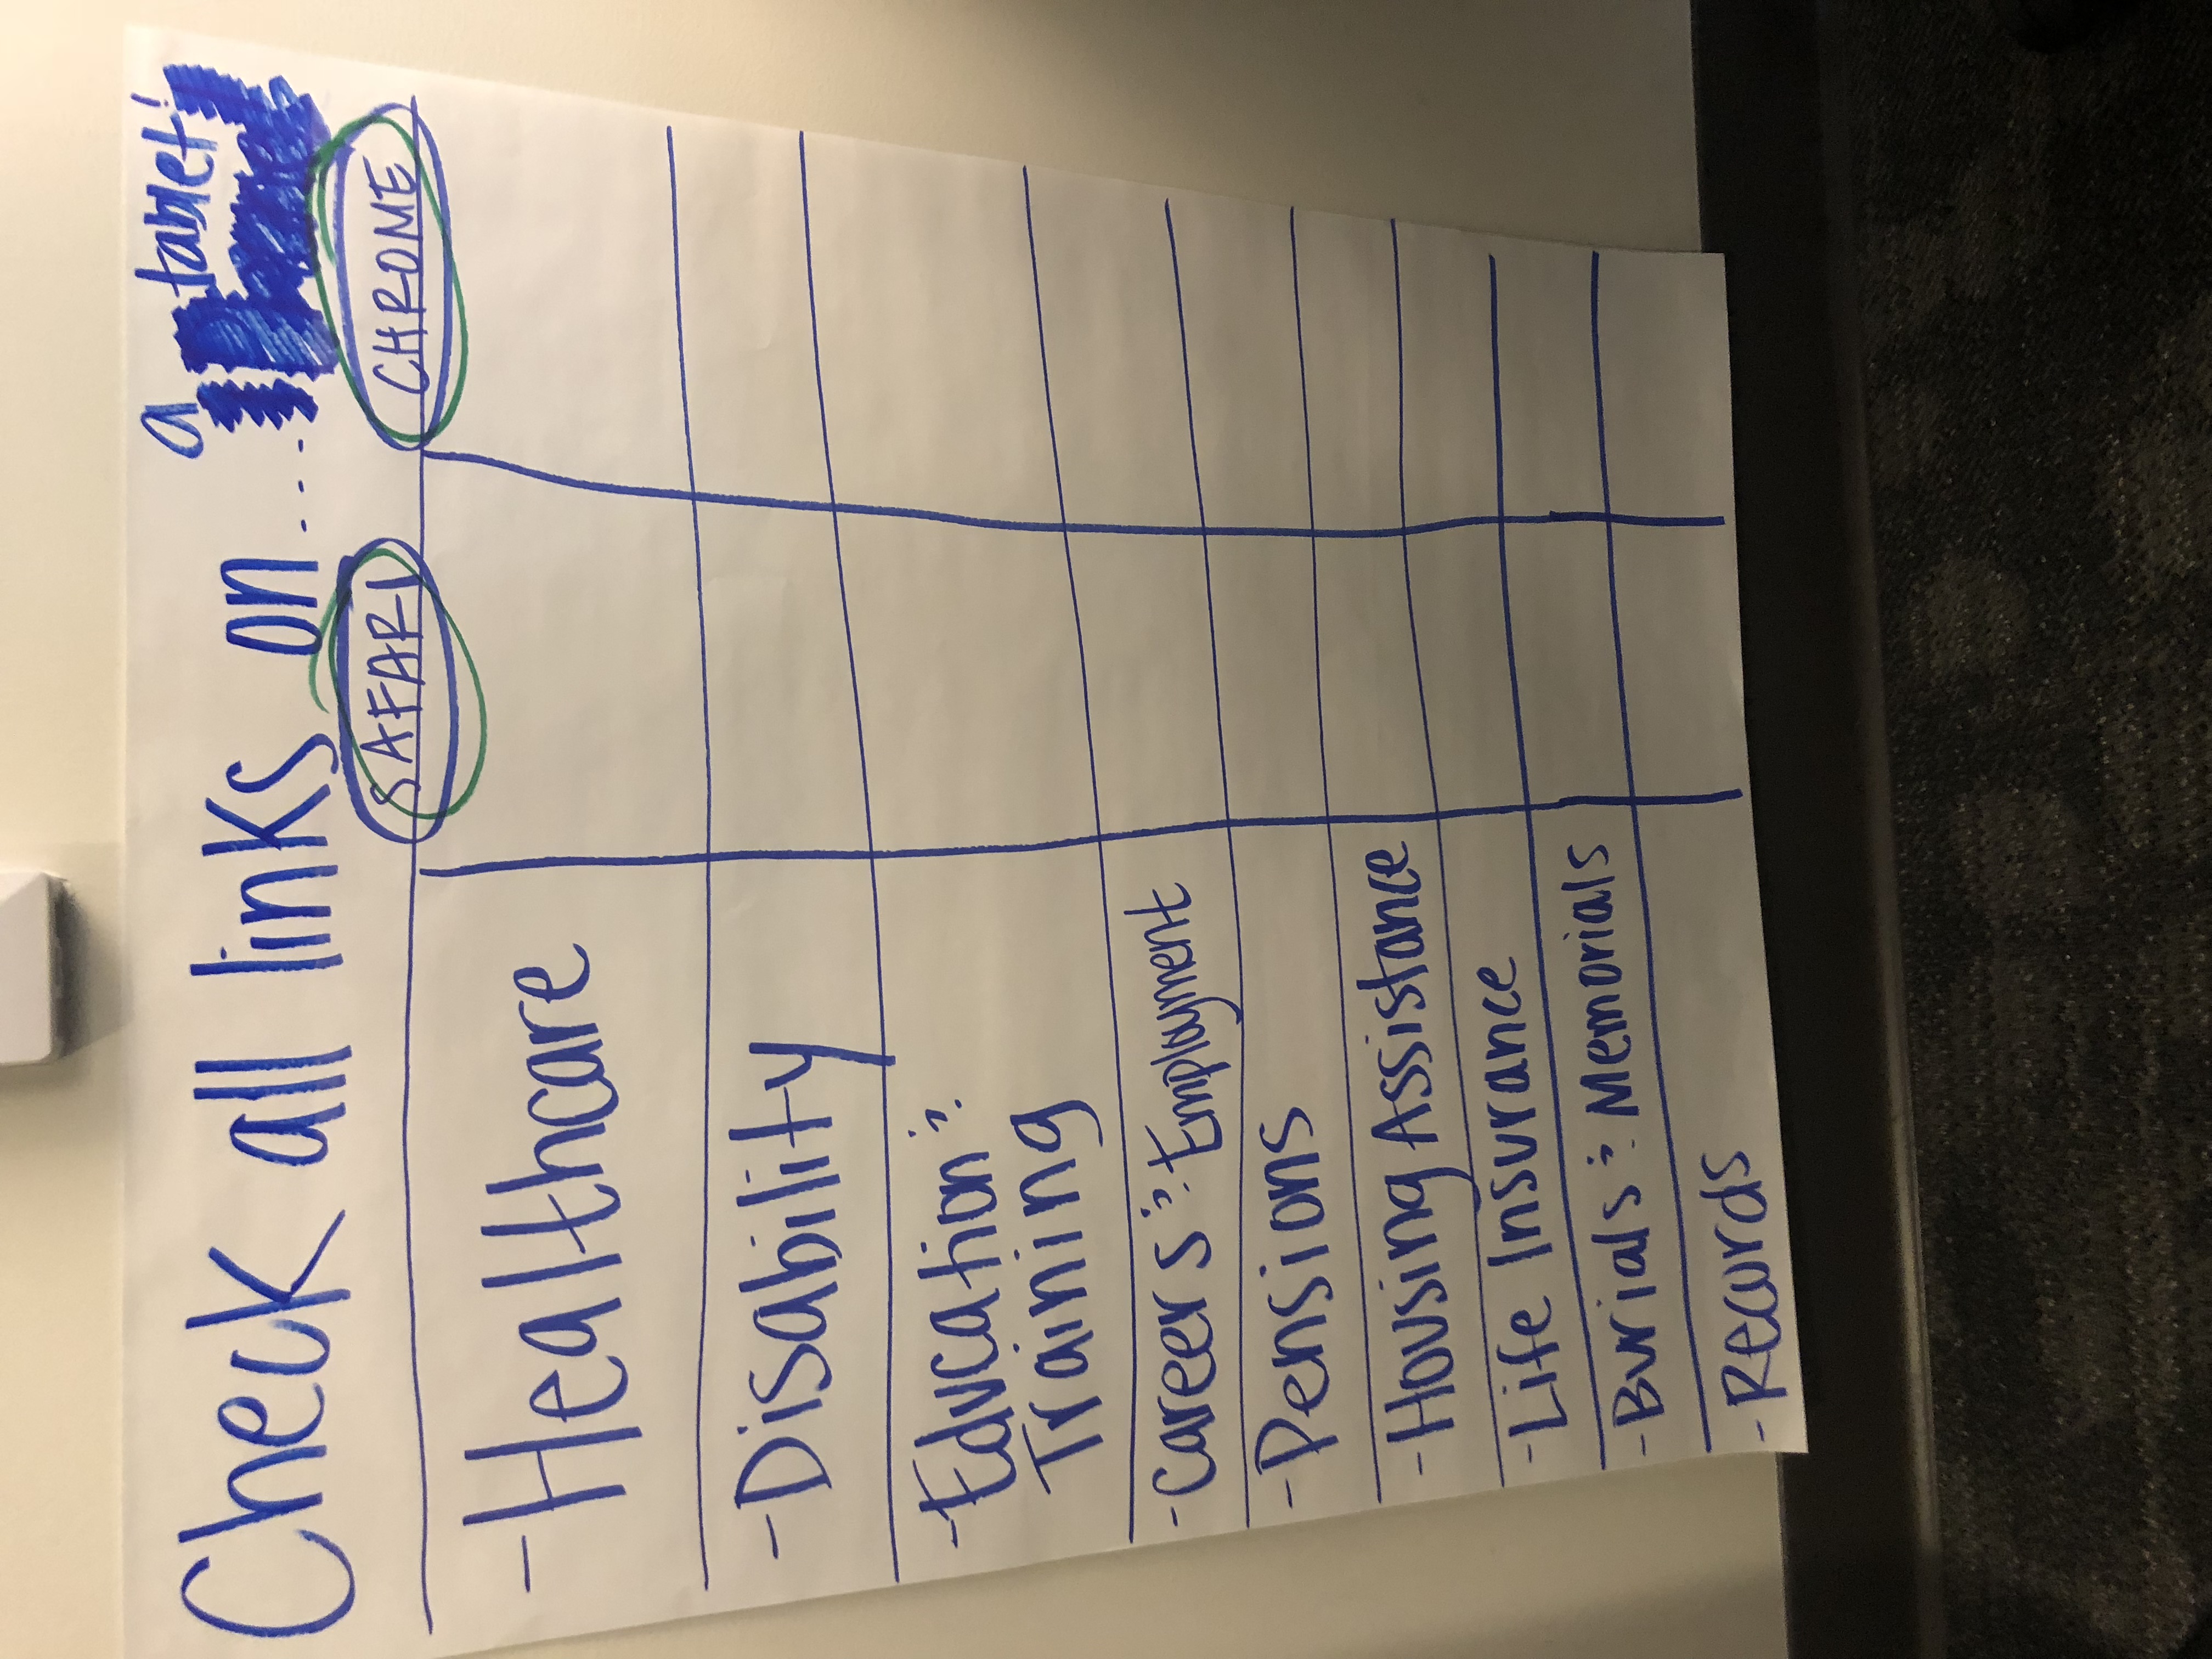 Check all links on... a tablet!
SAFARI CHROME
- Healthcare
- Disability
- Education &
Training
- Careers & Employment
- Pensions
- Housing Assistance
- Life Insurance
- Burials & Memorials
- Records